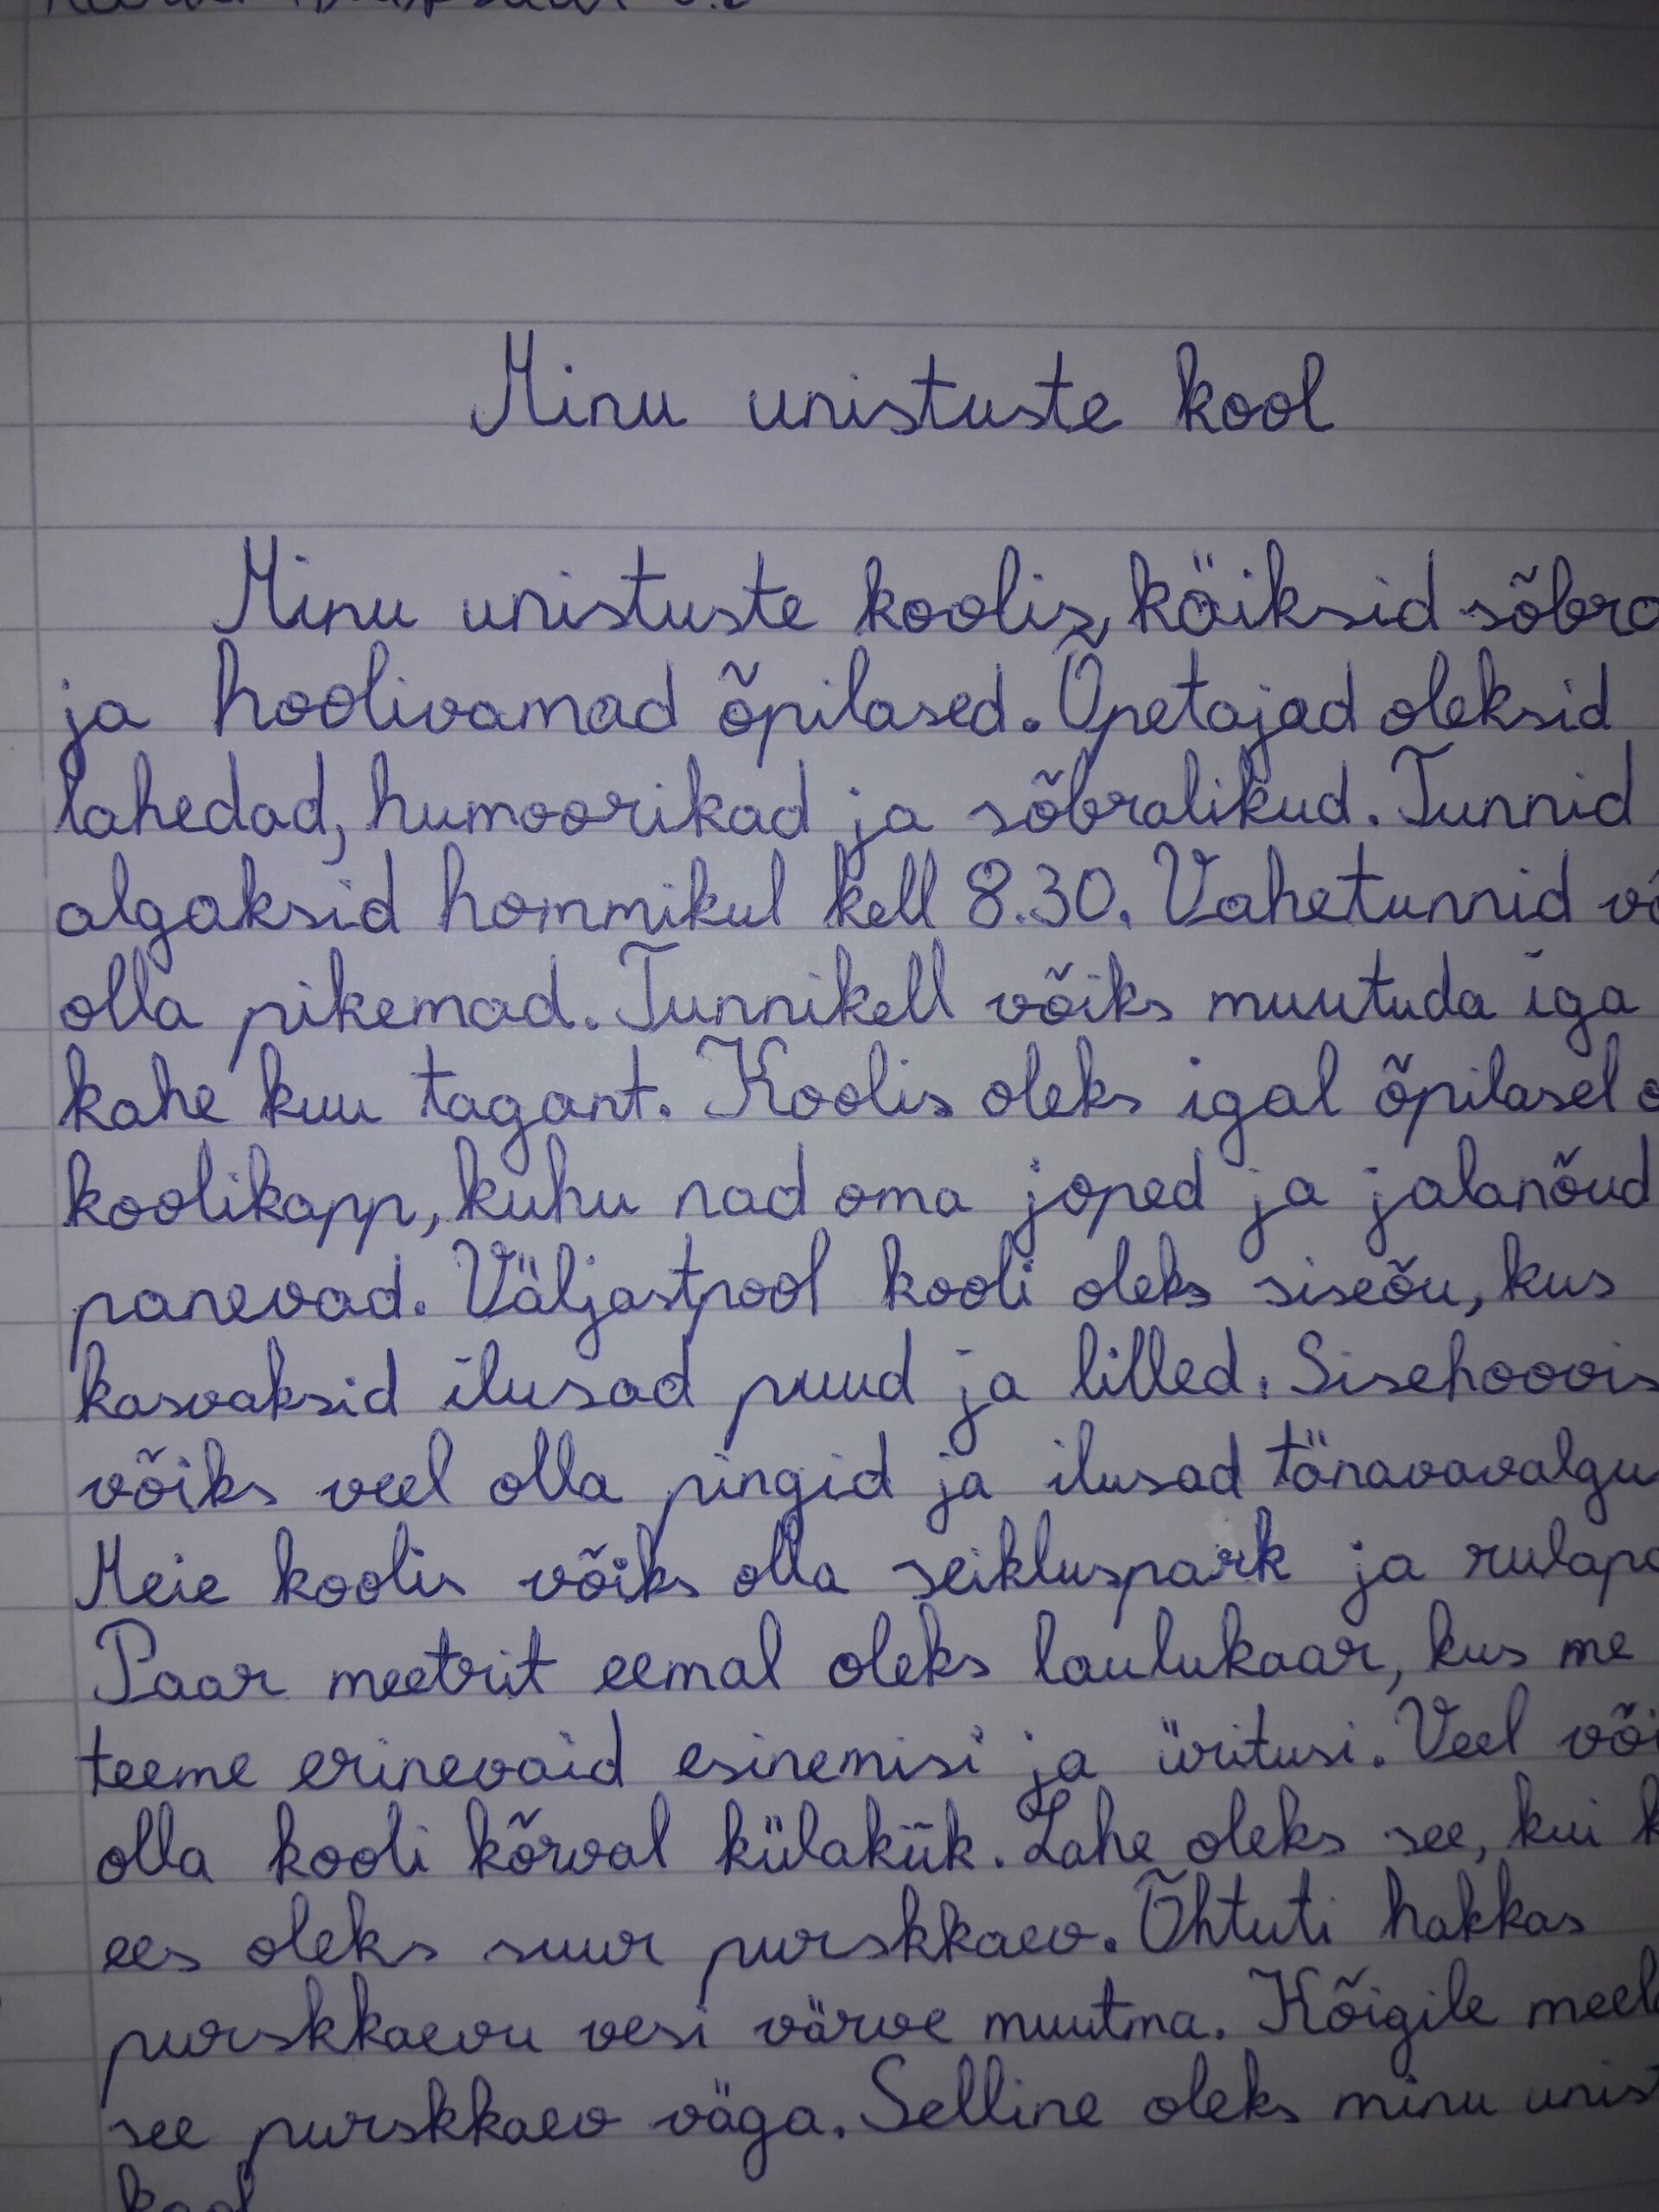 Minu unistuste kool
Minu unistuste koolis, käiksid
ja hoolivamad õpilased. Õpetajad oleksid
lahedad, humoorikad ja sõbralikud. Tunnid
algaksid hommikul kell 8.30. Vahetunnid
olla pikemad. Tunnikell võiks muutuda iga
kahe kuu tagant. Koolis oleks igal õpilasel
koolikapp, kuhu nad oma joped ja jalanõud
panevad. Väljastpool kooli oleks siseõu, kus
kasvaksid ilusad puud ja lilled. Sisehoovis
võiks veel olla pingid ja ilusad
Meie koolis võiks olla seikluspark ja
Paar meetrit eemal oleks laulukaar, kus me
teeme erinevaid esinemisi ja üritusi. Veel
olla kooli kõrval külakiik. Lahe oleks see, kui
ees oleks suur purskkaev. Õhtuti hakkas
purskkaevu vesi värve muutma. Kõigile
see purskkaev väga. Selline oleks minu
kool